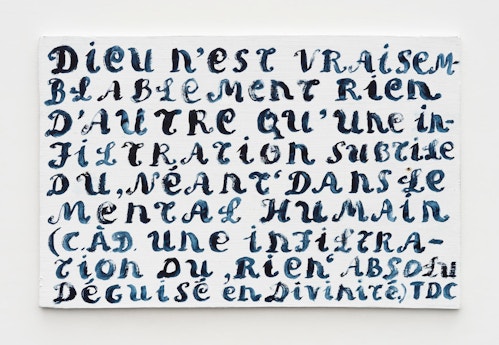 DIEU N'EST VRAISEM-
BLABLEMENT RIEN
D'AUTRE QU'UNE IN-
FILTRATION SUBTILE
DU ,NÉANT' DANS LE
MENTAL HUMAIN
(C.À.D. UNE INFILTRA-
TION DU ,RIEN' ABSOLU
DÉGUISÉ EN DIVINITÉ.) TDC